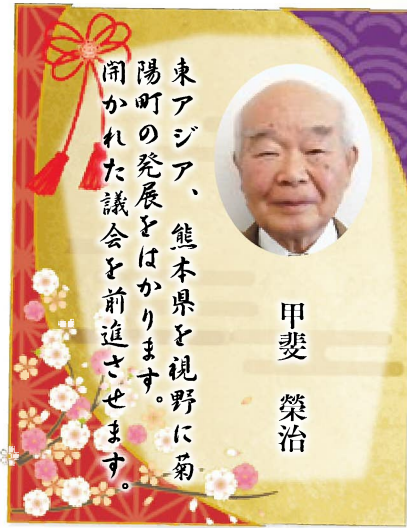 東アジア、熊本県を視野に菊
陽町の発展をはかります。
開かれた議会を前進させます。
甲斐　榮治